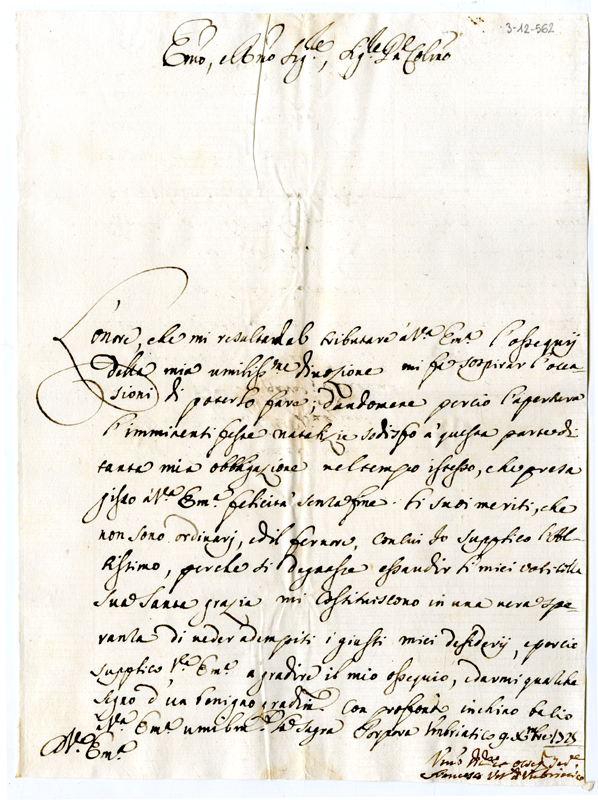 3-12-562
Em̃o, e Rm̃o Sig.re, Sig.re Pñe Colmo
L'onore, che mi resulta dal tributare à V.a Em.a l'ossequij
della mia umiliss.ma divozione mi fà sospirar l'occa
sioni di poterlo fare; dandomene perciò l'apertura
l'imminenti feste natalizie sodisfo à questa parte di
tanta mia obbligazione nel tempo istesso, che presa
gisco à V.a Em.a felicità senza fine. Li suoi meriti, che
non sono ordinarj, ed il fervore, con cui Io supplico l'Al-
tissimo, perche si degnasse essaudir li miei voti colla
sua santa grazia mi costituiscono in una vera spe
ranza di veder adempiti i giusti miei desiderij, e perciò
supplico V.a Em.a a gradire il mio ossequio, e darmi qualche
segno d'un benigno gradim.to Con profondo inchino bacio
à V.a Em.a umilm.te la Sagra Porpora Umbriatico 9. Xbre 1728
Di V.a Em.a
Um̃o
Francesco Ves. d'Umbriatico